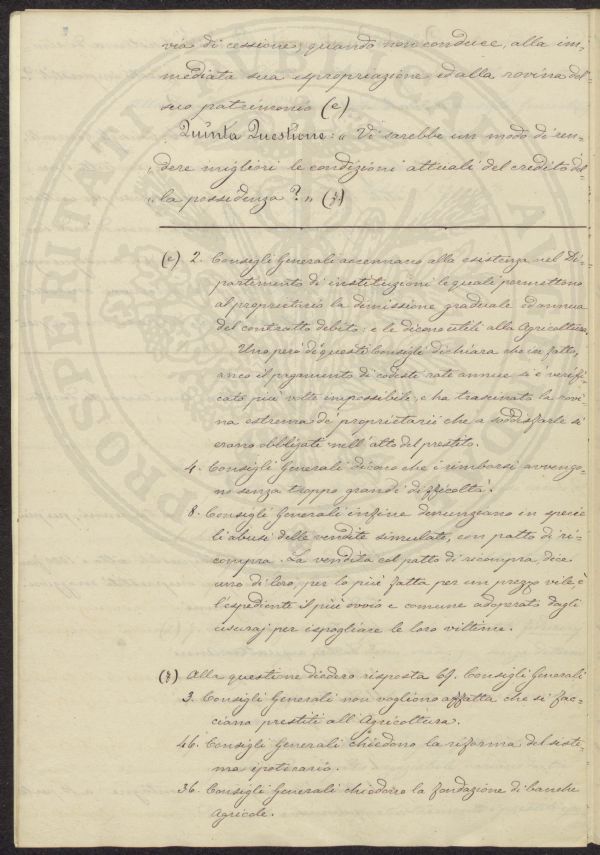 via di cessione, quando non conduce, alla im-
mediata sua espropriazione, ed alla rovina del
suo patrimonio (e)
Quinta Questione: " Vi sarebbe un modo di ren-
" dere migliori le condizioni attuali del credito del-
" la possidenza? " (f)
(e) 2. Consigli Generali accennano alla esistenza nel Di-
partimento di instituzioni le quali permettono
al proprietario la dimissione graduale ed annua
del contratto debito; e le dicono utili alla Agricoltura.
Uno però di questi Consigli dichiara che in fatto,
anco il pagamento di codeste rate annue si è verifi-
cato più volte impossibile, e ha trascinato la rovi-
na estrema de' proprietarii che a soddisfarle si
erano obbligati nell'atto del prestito.
4. Consigli Generali dicono che i rimborsi avvengo-
no senza troppo grandi difficoltà.
8. Consigli Generali infine denunziano in specie
li abusi delle vendite simulate, con patto di ri-
compra. La vendita col patto di ricompra, dice
uno di loro, per lo più fatta per un prezzo vile è
l'espediente il più ovvio e comune adoperato dagli
usuraj per ispogliare le loro vittime.
(f) Alla questione diedero risposta 69. Consigli Generali
3. Consigli Generali non vogliono affatto che si fac-
ciano prestiti all'Agricoltura.
46. Consigli Generali chiedono la riforma del siste-
ma ipotecario.
36. Consigli Generali chiedono la fondazione di banche
Agricole.
PROSPERITATI PUBLICAE